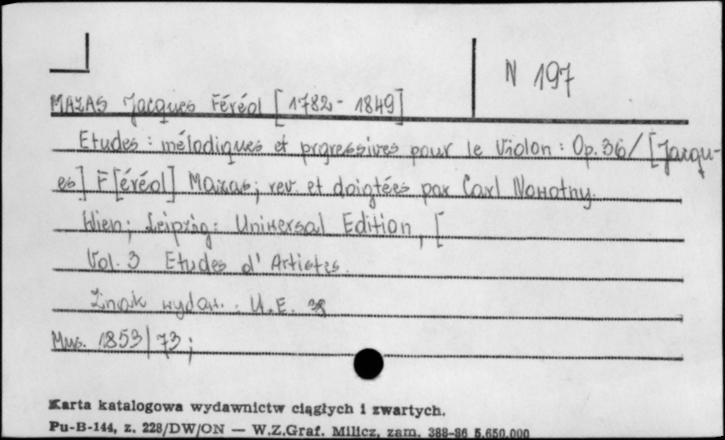 N 197
MAZAS Jacques Féréol [1782-1849]
Etudes : mélodiques et prgressives pour le Violon : Op. 36/ [Jacqu-
es] F[éréol] Mazas; rev. et doigtées par Carl Nowotny.
Wien; Leipzig: Universal Edition, [
Vol. 3 Etudes d'Artistes.
Znak wydaw. : U.E. 38
Mus. 1853/73;
Karta katalogowa wydawnictw ciągłych i zwartych.
Pu-B-144, z. 228/DW/ON — W.Z.Graf. Milicz, zam. 388-86 5.650.000